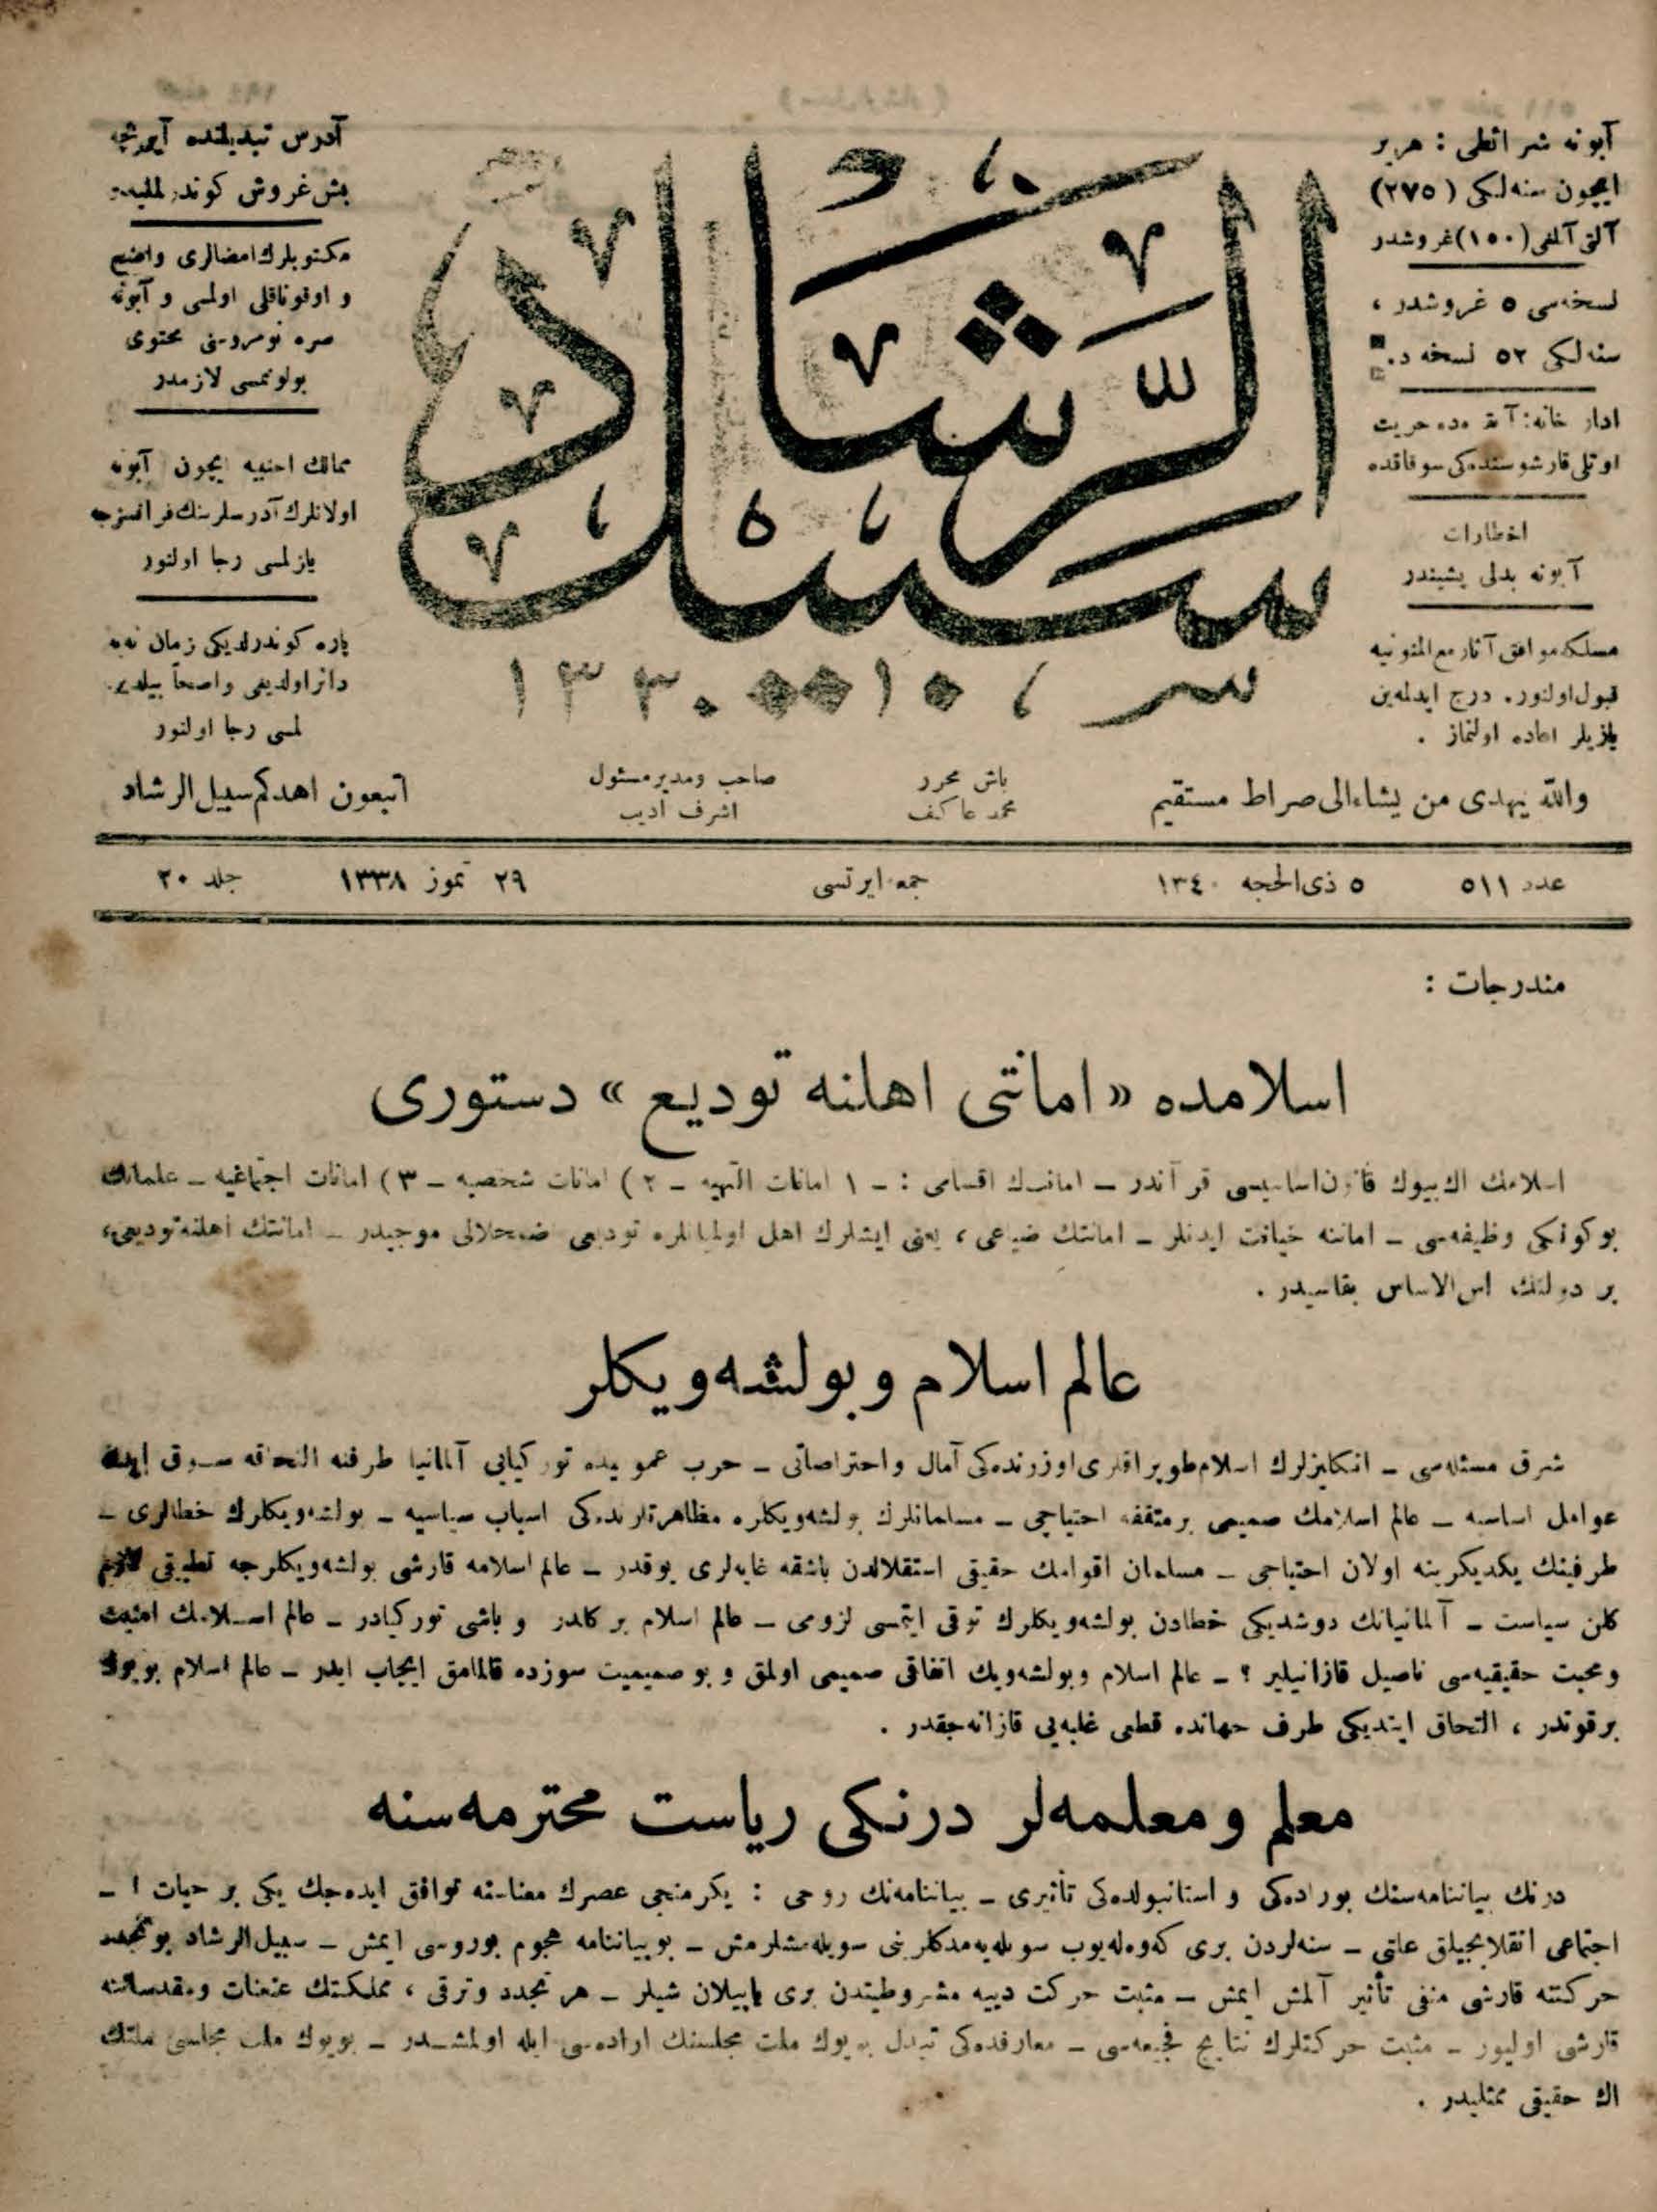 آبونه شرائطی : هر یر
ایچون سنه‌لکی (٢٧٥)
آلتی آیلغی (١٥٠) غروشدر
نسخه‌سی ٥ غروشدر ،
سنه‌لکی ٥٢ نسخه در.
اداره خانه : آنقره‌ده حریت
اوتلی قارشوسنده‌کی سوقاقده
اخطارات
آبونه بدلی پشیندر
مسلکه موافق آثار مع‌الممنونیه
قبول اولنور. درج ایدلمه‌ین
یازیلر اعاده اولنماز .
سبیل الرشاد
١٣٣٠
آدرس تبدیلنده آیریجه
بش غروش کوندرلملیدر
مکتوبلرك امضالری واضح
و اوقوناقلی اولمسی و آبونه
صره نومروسنی محتوی
بولونمسی لازمدر
ممالك اجنبیه ایچون آبونه
اولانلرك آدرسلرینك فرانسزجه
یازلمسی رجا اولنور
پاره کوندرلدیکی زمان نه‌یه
دائر اولدیغی واضحاً بیلدیر
لمسی رجا اولنور
والله یهدی من یشاء الی صراط مستقیم
باش محرر
محمد عاکف
صاحب ومدیر مسئول
اشرف ادیب
اتبعون اهدکم سبیل الرشاد
عدد ٥١١ ٥ ذی‌الحجه ١٣٤٠ جمعه ایرتسی ٢٩ تموز ١٣٣٨ جلد ٢٠
مندرجات :
اسلامده « امانتی اهلنه تودیع » دستوری
اسلامك اك بیوك قانون اساسیسی قرآندر ـ امانتك اقسامی : ـ ١ امانات الهیه ـ ٢ ) امانات شخصیه ـ ٣ ) امانات اجتماعیه ـ علمانك
بوکونکی وظیفه‌سی ـ امانته خیانت ایدنلر ـ امانتك ضیاعی ، یعنی ایشلرك اهل اولمیانلره تودیعی اضمحلالی موجبدر ـ امانتك اهلنه تودیعی ،
بر دولتك اس الاساس بقاسیدر .
عالم اسلام و بولشه‌ویکلر
شرق مسئله‌سی ـ انکلیزلرك اسلام طوپراقلری اوزرنده‌کی آمال و احتراصاتی ـ حرب عمومیده تورکیایی آلمانیا طرفنه التحاقه سوق ایدن
عوامل اساسیه ـ عالم اسلامك صمیمی بر متفقه احتیاجی ـ مسلمانلرك بولشه‌ویکلره مظاهرتلرنده‌کی اسباب سیاسیه ـ بولشه‌ویکلرك خطالری ـ
طرفینك یکدیکرینه اولان احتیاجی ـ مسلمان اقوامك حقیقی استقلالدن باشقه غایه‌لری یوقدر ـ عالم اسلامه قارشی بولشه‌ویکلرجه تطبیقی لازم
کلن سیاست ـ آلمانیانك دوشدیکی خطادن بولشه‌ویکلرك توقی ایتمسی لزومی ـ عالم اسلام بر کلدر و باشی تورکیادر ـ عالم اسلامك امنیت
و محبت حقیقیه‌سی ناصیل قازانیلیر ؟ ـ عالم اسلام و بولشه‌ویك اتفاقی صمیمی اولمق و بو صمیمیت سوزده قالمامق ایجاب ایدر ـ عالم اسلام بویوك
بر قوتدر ، التحاق ایتدیکی طرف جهانده قطعی غلبه‌یی قازانه‌جقدر .
معلم و معلمه‌لر درنکی ریاست محترمه‌سنه
درنك بیاننامه‌سنك بوراده‌کی و استانبولده‌کی تأثیری ـ بیاننامه‌نك روحی : یکرمنجی عصرك معناسنه توافق ایده‌جك یکی بر حیات ! ـ
اجتماعی انقلابجیلق عاتی ـ سنه‌لردن بری که‌وه‌له‌یوب سویله‌یه‌مدکلرینی سویله‌مشلرمش ـ بو بیاننامه هجوم بوروسی ایمش ـ سبیل‌الرشاد بو تجدد
حرکتنه قارشی منفی تأثیر آلمش ایمش ـ مثبت حرکت دییه مشروطیتدن بری یاپیلان شیلر ـ هر تجدد و ترقی ، مملکتك عنعنات و مقدساتنه
قارشی اولیور ـ مثبت حرکتلرك نتایج فجیعه‌سی ـ معارفده‌کی تبدل بویوك ملت مجلسنك اراده‌سی ایله اولمشدر ـ بویوك ملت مجلسی ملتك
اك حقیقی ممثلیدر .